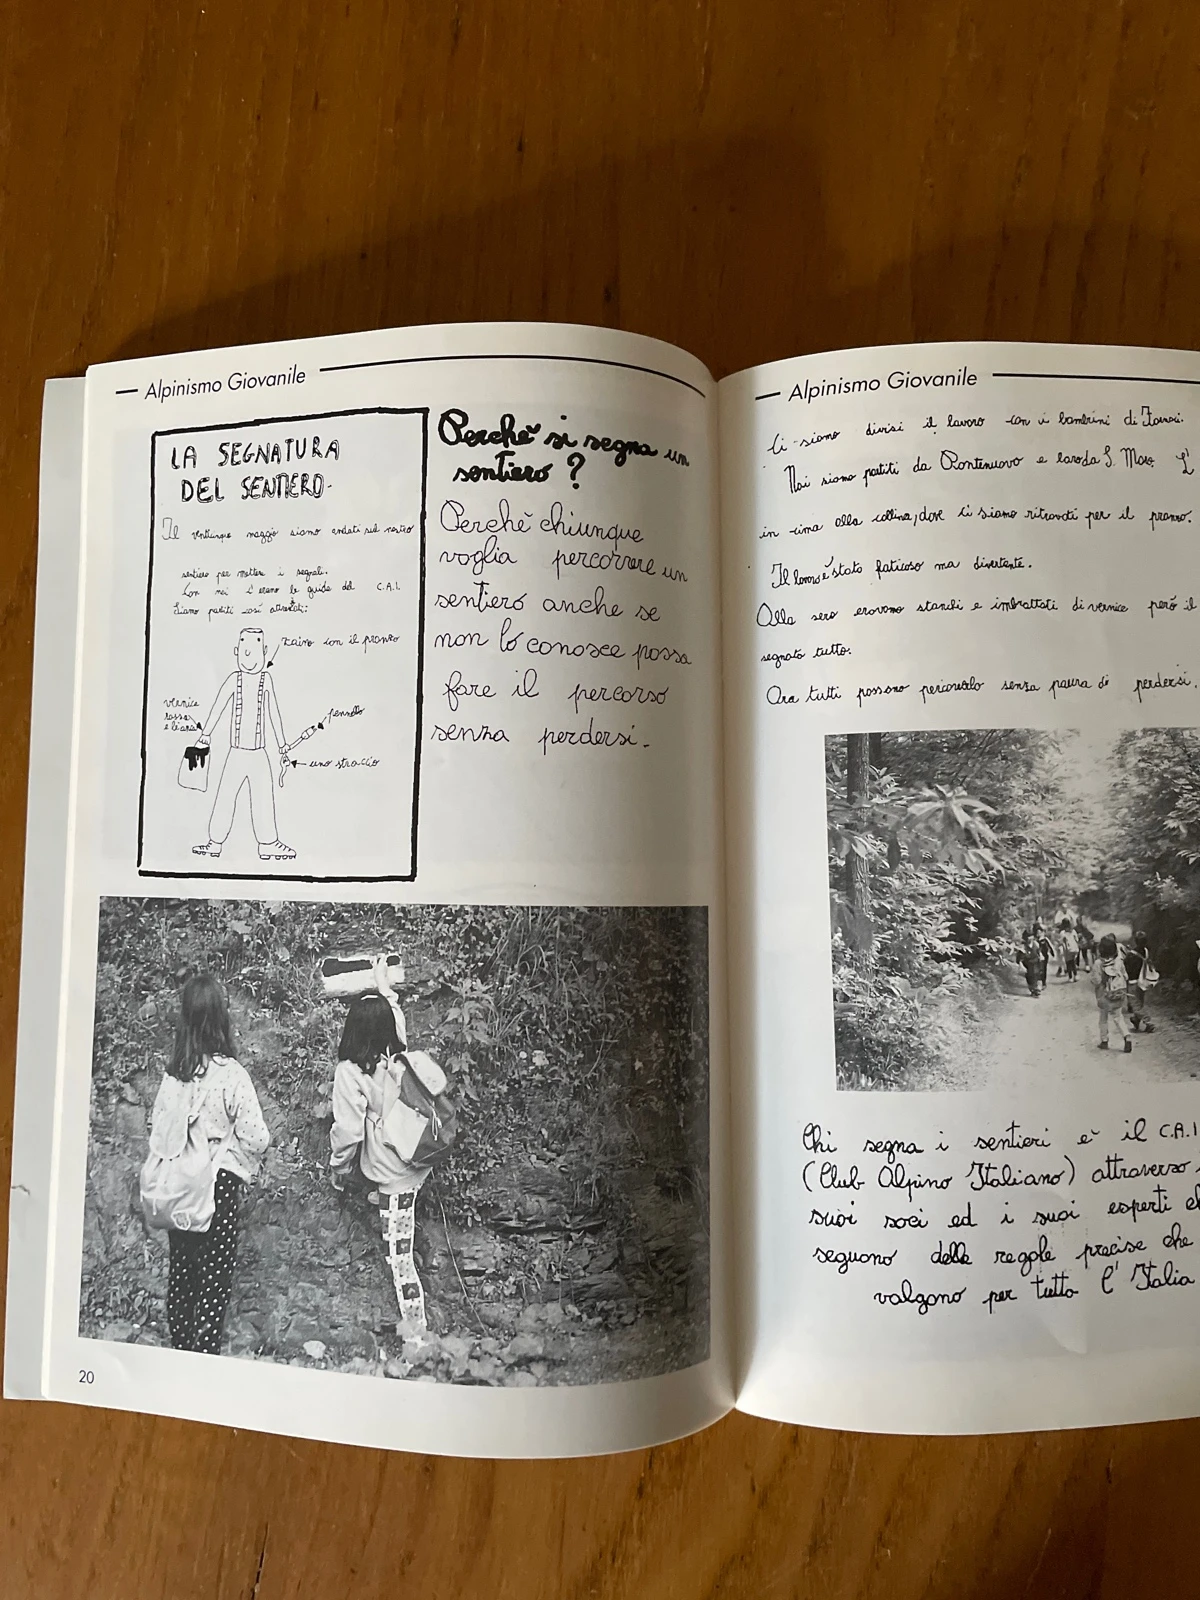 Alpinismo Giovanile
LA SEGNATURA
DEL SENTIERO-
Il ventinque maggio siamo andati sul nostro
sentiero per mettere i segnali.
Con noi c'erano le guide del C.A.I.
Siamo partiti così attrezzati:
zaino con il pranzo
vernice
rossa
e bianca
pennello
uno straccio
Perchè si segna un
sentiero?
Perchè chiunque
voglia percorrere un
sentiero anche se
non lo conosce possa
fare il percorso
senza perdersi.
20
Alpinismo Giovanile
Ci siamo divisi il lavoro con i bambini di
Noi siamo partiti da Pontenuovo e loro da S. L'
in cima alla collina, dove ci siamo ritrovati per il pranzo.
Il lavoro è stato faticoso ma divertente.
Alla sera eravamo stanchi e imbrattati di vernice però il
segnato tutto.
Ora tutti possono percorrerlo senza paura di perdersi.
Chi segna i sentieri è il C.A.I
(Club Alpino Italiano) attraverso i
suoi soci ed i suoi esperti
seguono delle regole precise che
valgono per tutta l'Italia